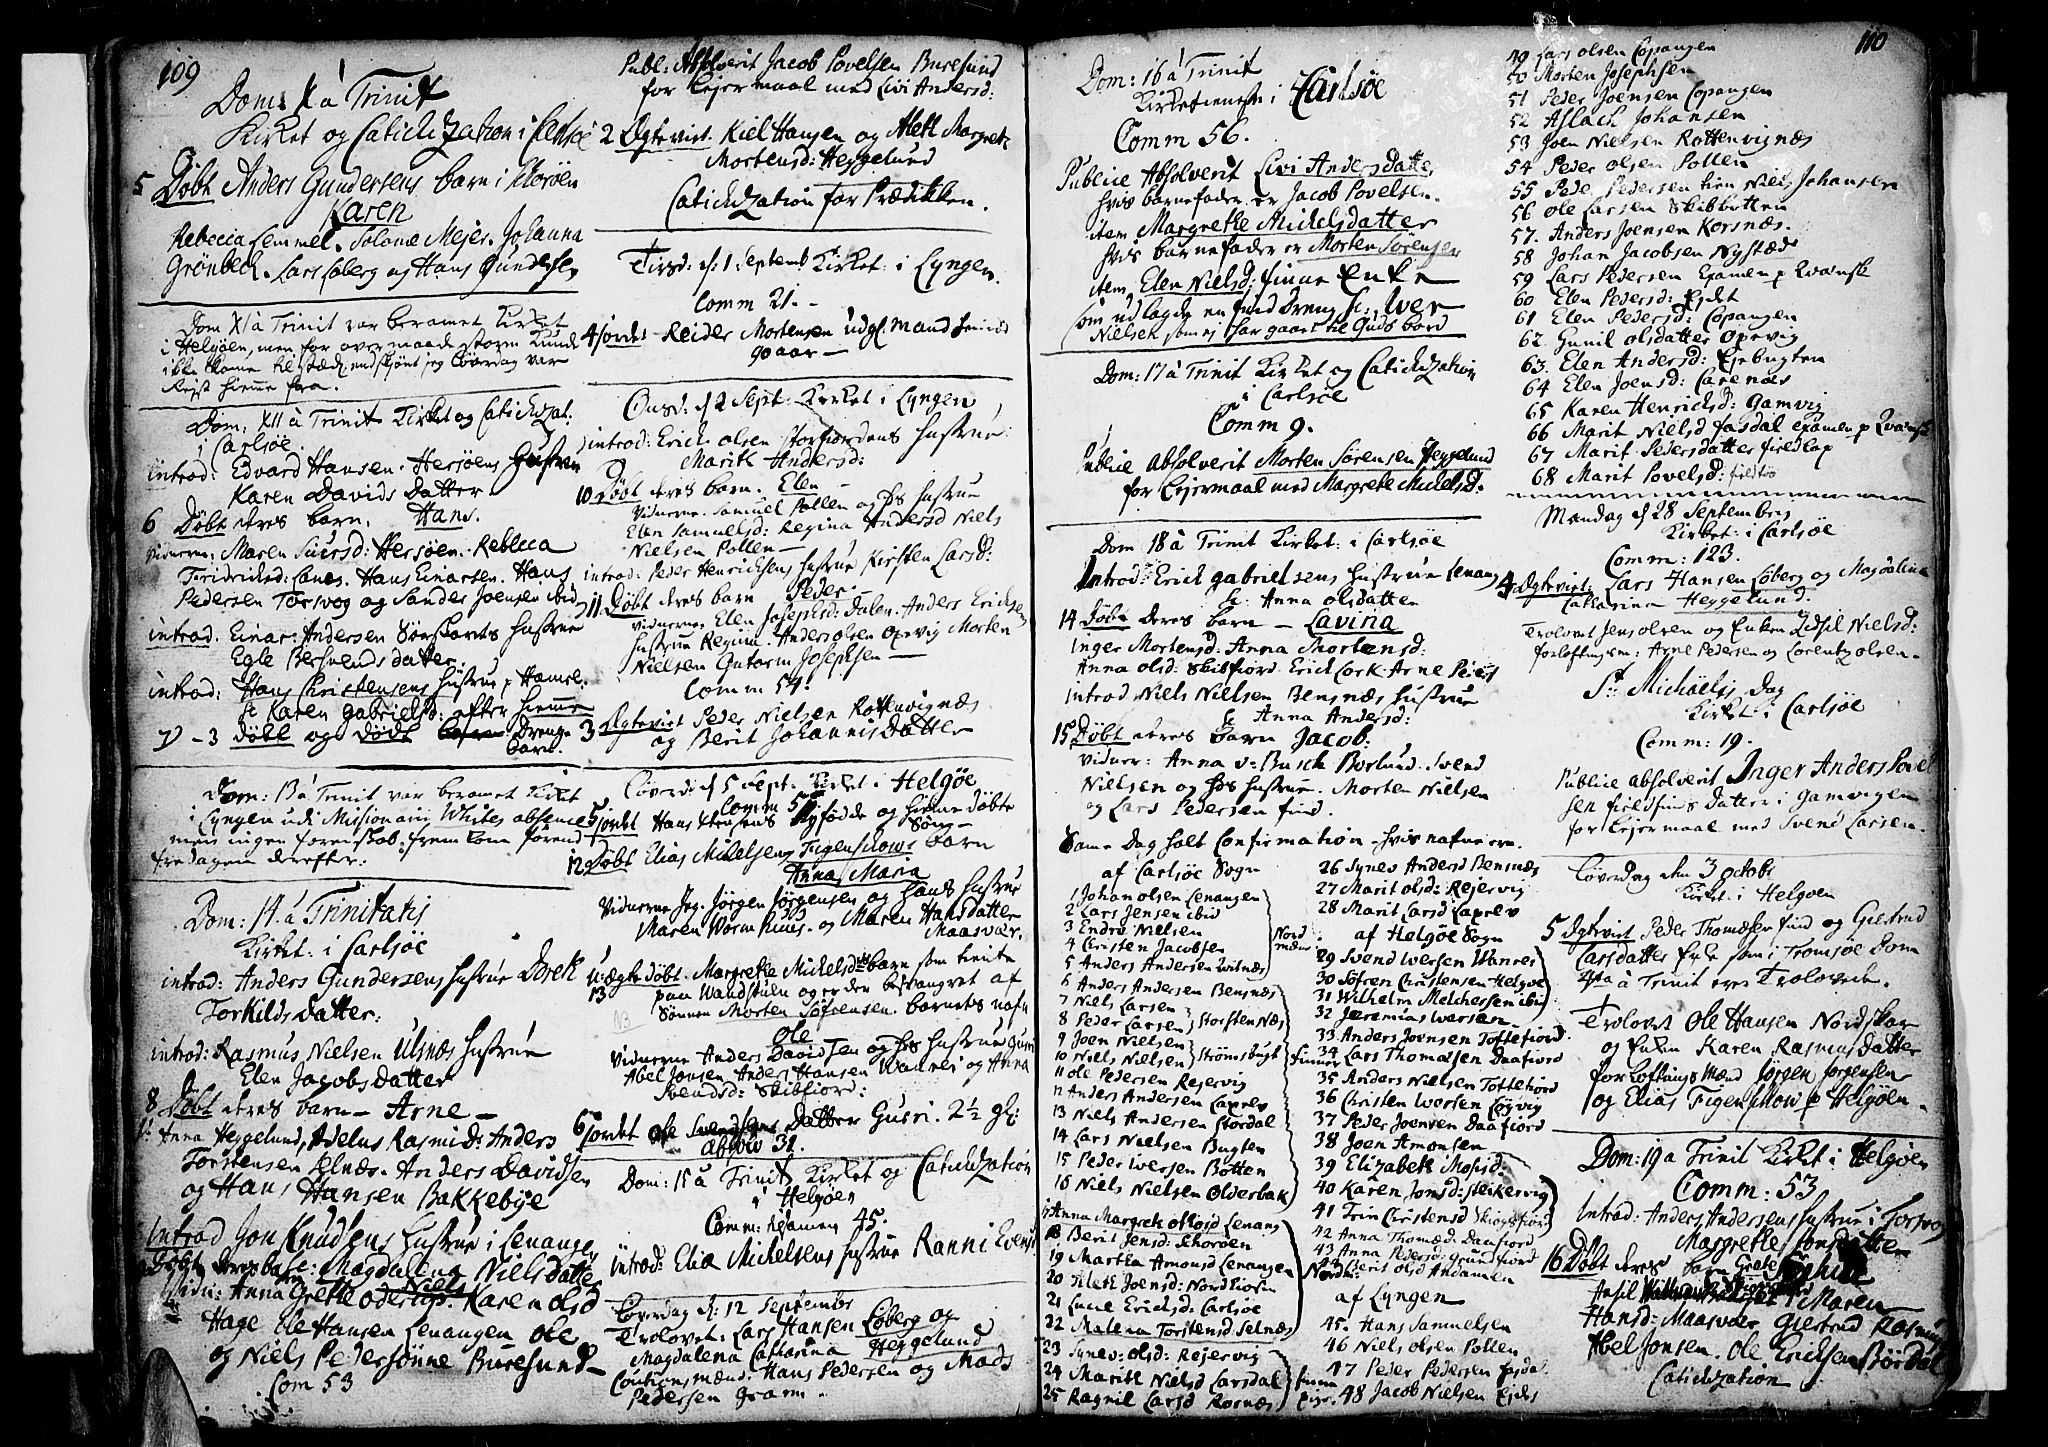 109
Dom: X à Trinit
Kirket og Catichization i Carlsøe
5 Døbt Anders Gundersens barn i Skorøen
Karen
Rebecca Lemmel. Solome Mejer. Johanna
Grönbech. Lars Loberg og Hans Gundersen
Dom XI à Trinit var beramet Kirket
i Helgöen, men for overmaade storm Kunde
ikke Kome til stæde, endskjönt jeg Löverdag var
Rejst hiemme fra.
Dom: XII à Trinit Kirket og Catichizat:
i Carlsøe
introd: Edvard Hansen Hersøens Hustrue
Karen Davids Datter
6 Døbt deres barn. Hans.
vidnerne: Maren Siursd: Hersøen. Rebecca
Fridrichsd: Hans Einarsen. Hans
Pedersen Torsvog og Sander Joensen ibid
introd. Einar Andersen Hustrue
Egle Berhends datter.
introd: Hans Christensens Hustrue p Hamre
Karen Gabrielsd: efter hiemme
7 - 3 døbt og dødt Drenge
barn.
Dom: 13 à Trinit var beramet Kirket
i Lyngen udi Missionair Whites absence
men ingen frem kom förend
fredagen derefter.
Dom: 14. à Trinitatis
Kirket: i Carlsøe
introd: Anders Gundersens Hustrue Doreth
Torkilds datter:
introd: Rasmus Nielsen Ulsnæs Hustrue
Elen Jacobs datter
8 Døbt deres barn - Arne -
Anna Heggelund, Adelus Rasmusd: Anders
Torstensen Selnæs. Anders Davidsen
og Hans Hansen Bakkebye
Introd Jon Knudsens Hustrue i Lenangen
Magdalena Nielsdatter
Døbt deres barn Niels
vidn: Anna Grethe Karen olsd
Hage Ole Hansen Lenangen Ole
og Niels Pedersönne Buresund
Com 53
Publ: Absolverit Jacob Povelsen Buresund
for Lejermaal med Livi Andersd:
2 Ægtevict. Kiel Hansen og Aleth Margreth
Mortensd: Heggelund
Catichization for Prædikken.
Tirsd: d: 1 Septemb Kirket: i Lyngen.
Comm 21. -
4 Jordet Reider Mortensen udgl. mand
90 aar -
Onsd: d 2 Sept: Kirket i Lyngen
introd: Erich olsen Storfiordens Hustrue
Marith Andersd:
10 Døbt deres barn. Elen -
Vidnerne. Samuel Pollen og hs Hustrue
Elen Samuelsd: Regina Andersd Niels
Nielsen Pollen -
introd: Peder Henrichsens Hustrue Kirsten Larsd:
11 Døbt deres barn Peder -
vidnerne Elen Josephsd: Dalen. Anders Erichsen
Hustrue Regina. Anders olsen Opevig Morten
Nielsen Gutorm Josephsen -
Comm 54:
3 Ægtevict Peder Nielsen Rottenvignæs
og Berit Johannisdatter
Löverd: d 5 Sept. Kirket i Helgöe
Comm 57
5 Jordet Hans Nyfödde og hiemme döbte
Sön -
12 Døbt Elias Mickelsens Figenschows barn
Anna Maria
Vidnerne Jeg. Jørgen Jørgensen og hans Hustrue
Maren Worm og Maren Hansdatter
Maasvær.
U:ægte døbt. Margrethe Michelsdtrs barn som tiente
13 paa Wandstuen og er der besvangret af
Sönnen Morten Söfrensen. barnets nafn
Ole
Vidnerne Anders Davidsen og hs Hustrue Guri
Abel Jonsen Anders Hansen Wannei og Anna
Svendsd: Skibfiord:
6 Jordet Ole Svendsens Datter Guri. 2½ gl:
absolv 31.
Dom: 15 à Trinit Kirket og Catichization
i Helgöen
Comm: Examen 45.
introd: Elia Mickelsens Hustrue Ranni Evens
Löverdag d: 12 Septembr
Trolovet: Lars Hansen Loberg og
Magdalena Catharina Heggelund
Cautionsmænd: Hans Pedersen og Mads
Pedersen Gram.
110
Dom: 16 à Trinit
Kirketieneste i Carlsöe
Comm 56.
Publice Absolverit Livi Andersdatter
hvis barnefader er Jacob Povelsen.
item Margrethe Mickelsdatter
hvis barnefader er Morten Sörensen
item Elen Nielsd: finne Enke
som udlagde en find Dreng Iver
Nielsen som ej har gaaet til Guds bord
Dom: 17 à Trinit Kirket og Catichization
i Carlsöe
Comm 9.
Publice absolverit Morten Sörensen Heggelund
for Lejermaal med Margrethe Michelsd.
Dom 18 à Trinit Kirket: i Carlsöe
Introd: Erich Gabrielsens Hustrue Lenang
Anna Olsdatter
14 Döbt deres barn - Lavina
Inger Mortensd: Anna Mortensd:
Anna olsd: Skibfiord. Erich Lork Arne Peders
introd Niels Nielsen Bensnæs Hustrue
Anna Andersd:
15 Döbt deres barn Jacob:
vidner: Anna v: Busch Burlund. Svend
Nielsen og hs Hustrue. Morten Nielsen
og Lars Pedersen find.
Same Dag holt Confirmation - hvis nafne ere.
af Carlsöe Sogn
1 Johan olsen Lenangen
2 Lars Jensen ibid
3 Endre Nielsen
4 Christen Jacobsen
5 Anders Andersen Witnæs
Nord
mænd
6 Anders Andersen Bensnæs
7 Niels Larsen
8 Peder Larsen Storstennæs
9 Joen Nielsen
10 Niels Nielsen Strömsbugt
11 Ole Pedersen Rejervig
12 Anders Andersen Laxelv
13 Niels Andersen Stordal
14 Lars Nielsen Bugten
15 Peder Iversen Botten
16 Niels Nielsen Olderbak
Finner
17 Anna Margreth Olsd Lenang
18 Berit Jensd: Skorøen
19 Martha Amonsd Lenangen
20 Aleth Joensd: Nordkiosen
21 Lucie Erichsd: Carlsöe
22 Malena Torstensd Selnæs
Nordsk:
23 Synev: olsd: Rejervig
24 Marith Nielsd Larsdal
25 Ragnil Larsd Rosnæs
finne
Piger.
26 Synev Andersd Bensnæs
27 Marit olsd: Rejervig
28 Marit Larsd Laxelv
af Helgöe Sogn
29 Svend Iversen Wannes
30 Söfren Christensen Helgöe
31 Wilhelm Melchersen ibid
32 Jeremias Iversen
33 Anders Joensen Tottefiord
34 Lars Thomæsen Daafiord
35 Anders Nielsen Tottefiord
36 Christen Iversen Leyvig
37 Peder Joensen Daafiord
38 Joen Amonsen
39 Elizabeth Mosisd:
40 Karen Jonsd: Steikervig
41 Trin Christensd Skogsfiord
42 Anna Thomæsd: Daafiord
43 Anna Pedersd: Grundfiord
44 Berit olsd Andamen
af Lyngen
45. Hans Samuelsen
46 Niels olsen Pollen
47 Peder Pedersen Fosdal
48 Jacob Nielsen Ejdet
49 Lars olsen Copangen
50 Morten Josephsen
51 Peder Joensen Copangen
52 Aslach Johansen
53 Joen Nielsen Rottenvignæs
54 Peder olsen Pollen
55 Peder Pedersen hien Niels Johansen
56 Ole Larsen Skibbotten
57. Anders Joensen Korsnæs.
58 Johan Jacobsen Nystæde
59 Lars Pedersen Examen p Qvænsk
60 Elen Pedersd: Ejdet
61 Elen Pedersd: Copangen
62 Gunil olsdatter Opevig
63. Elen Andersd: Ejebugten
64 Elen Joensd: Carenæs
65 Karen Henrichsd: Gamvig
66 Marit Nielsd Fasdal Examen p Qvænsk
67 Marit Pedersdatter fieldlap
68 Marit Povelsd:
Mandag d 28 Septembris
Kirket: i Carlsöe
Comm: 123.
4 Ægteviet: Lars Hansen Loberg og Magdalena
Catharina Heggelund.
Trolovet Jens olsen og Enken Zidsil Nielsd:
forloftningsm: Arne Pedersen og Lorentz olsen.
St: Michäelis Dag
Kirket i Carlsöe
Comm: 19.
Publice absolverit Inger Anders Povel
sen fieldfins Datter i Gamvigen
for Lejermaal med Svend Larsen.
Löverdag den 3 octobr
Kirket: i Helgöen
5 Ægteviet Peder Thomæsen find og Giertrud
Larsdatter Enke som i Tromsöe Dom
4ta à Trinit ere Trolovede.
Trolovet Ole Hansen Nordskar
og Enken Karen Rasmusdatter
forloftnings Mænd Jørgen Jørgensen
og Elias Figenschow p Helgöen.
Dom: 19 à Trinit Kirket i Helgöen
Comm: 53
Introd: Anders Andersens Hustrue i Torsvog
Margrethe Jonsdatter
16 Döbt deres barn Grete
Maren
Hansd: Maasvær Giertrud Rasmus
Abel Jonsen. Ole Erichsen Bördal
Catichization